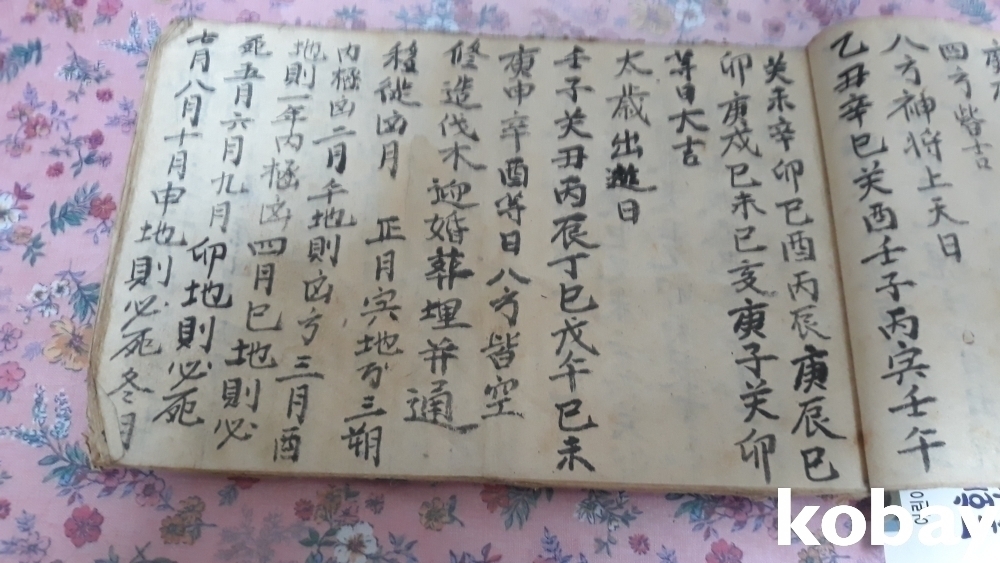 四方皆吉
八方神将上天日
乙丑辛巳癸酉壬子丙寅壬午
癸未辛卯巳酉丙辰庚辰巳
卯庚戌巳未巳亥庚子癸卯
等日大吉
太歲出遊日
壬子癸丑丙辰丁巳戊午巳未
庚申辛酉等日八方皆空
修造伐木迎婚葬埋并通
移徙凶月 正月寅地方三朔
內極凶二月午地則凶方三月酉
地則一年內極凶四月巳地則必
死五月六月九月卯地則必死
七月八月十月申地則必死冬月
어린이
koba